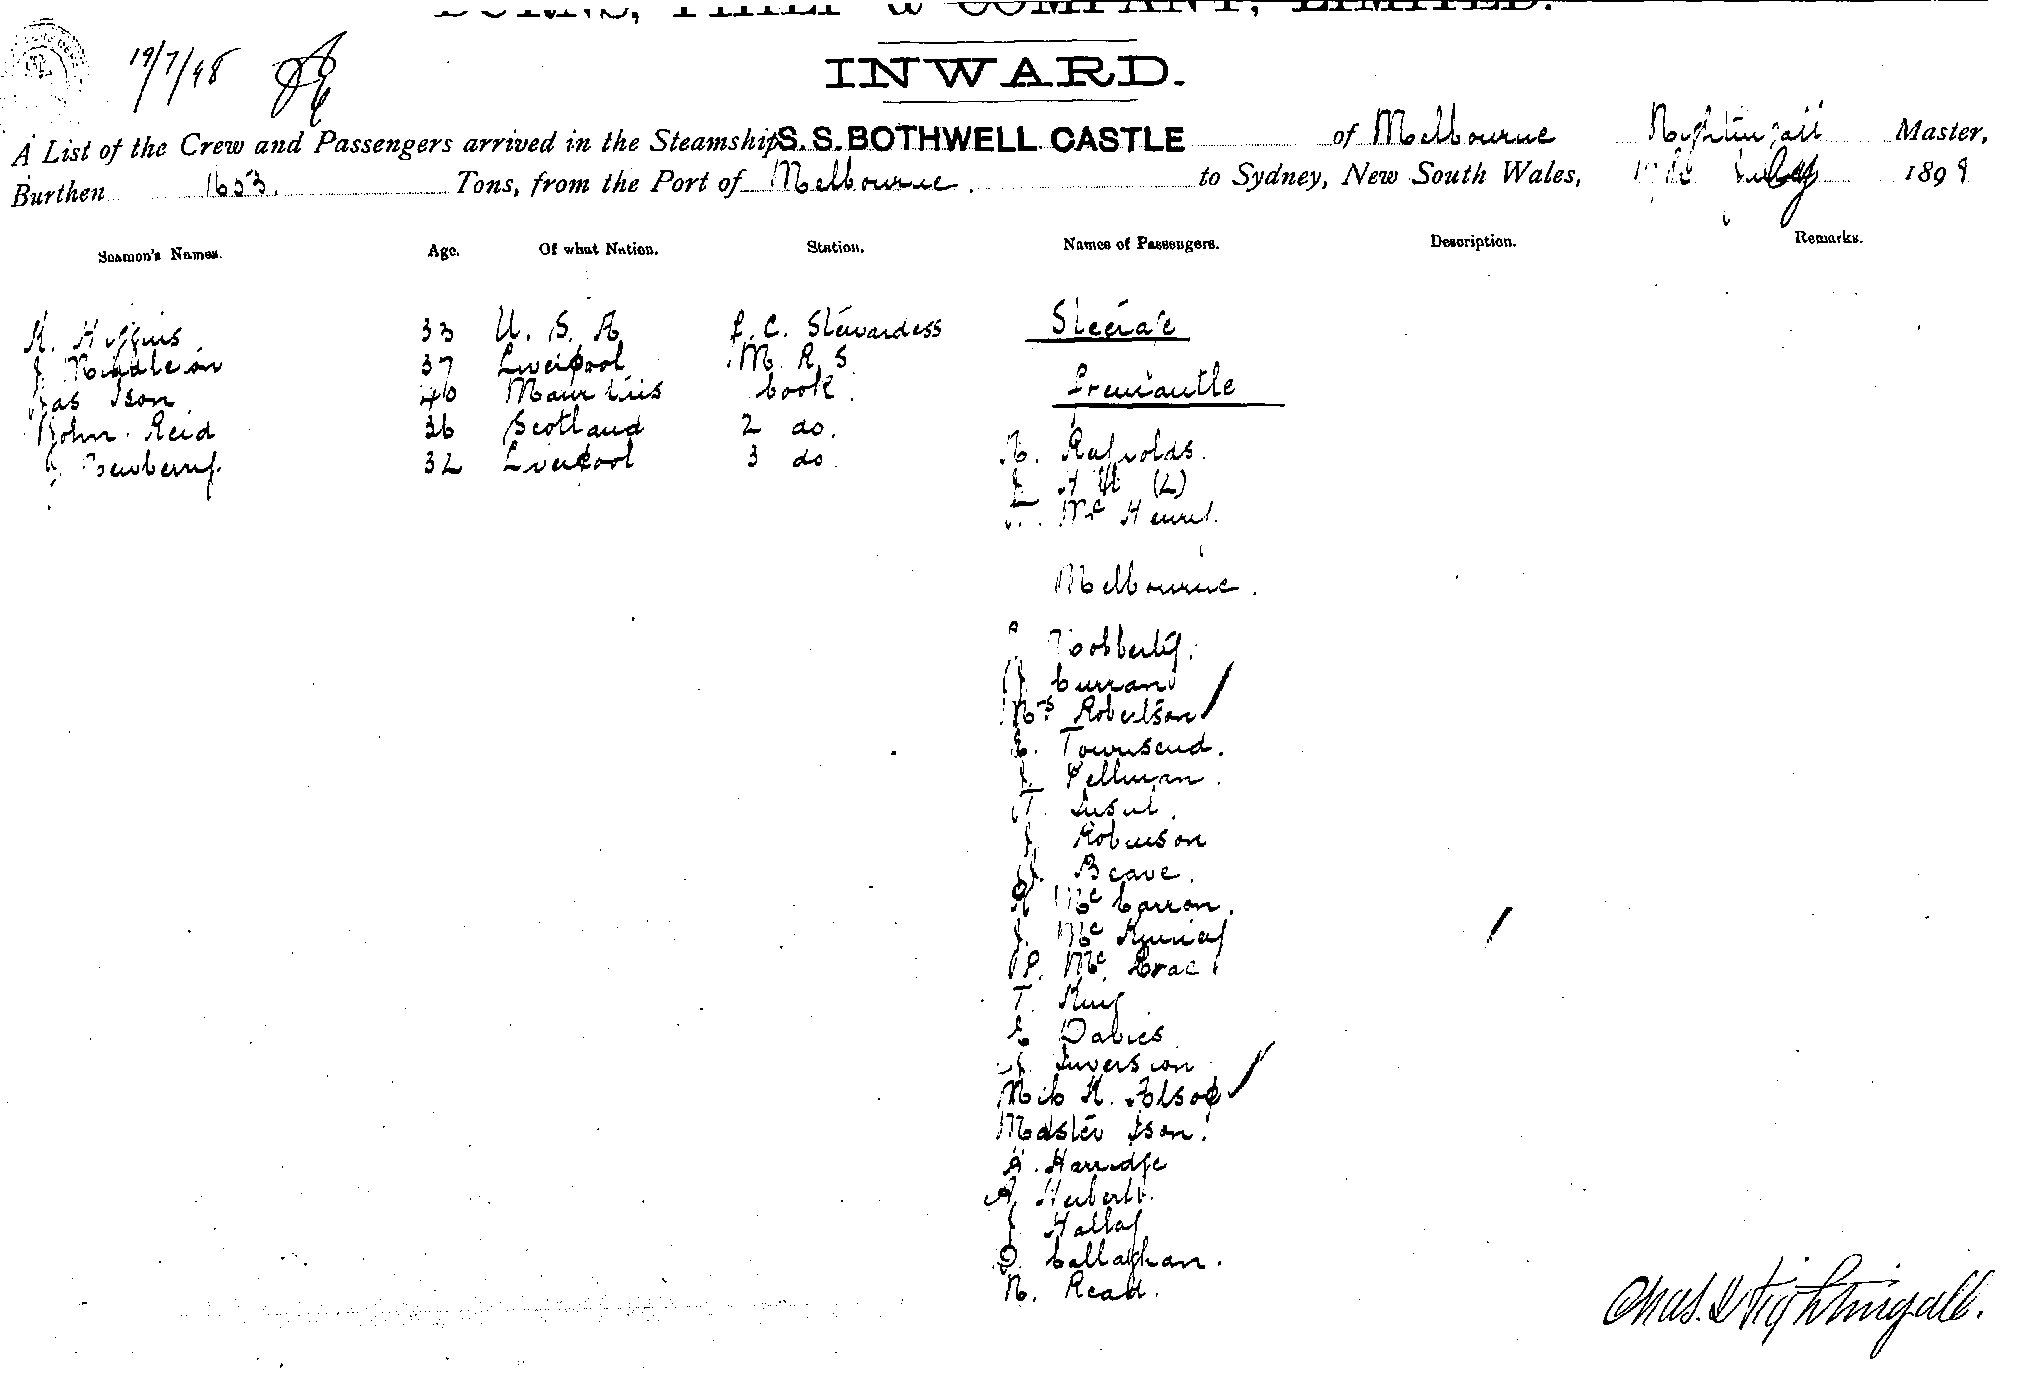 BURNS, PHILP & COMPANY, LIMITED.
19/7/98
INWARD.
A List of the Crew and Passengers arrived in the Steamship S.S. BOTHWELL CASTLE of Melbourne Nightingall Master,
Burthen 1653. Tons, from the Port of Melbourne. to Sydney, New South Wales, July 1898
Seamen's Names. Age. Of what Nation. Station. Names of Passengers. Description. Remarks.
Steerage
K. Higgins 33 U. S. A F. C. Stewardess
J. Middleton 37 Liverpool M. R S.
Fremantle
Jas Ison. 46 Mauritius Cook.
John Reid 36 Scotland 2 do.
J. Newberry. 32 Liverpool 3 do.
N. Reynolds.
(2)
Mc Henry.
Melbourne.
Curran
Mrs Robertson
Townsend.
J. Pellman.
T.
J. Robinson
Beave.
Mc Carron.
J. Mc
P. Mc Crae
T. King
E Davies
J.
Miss K.
Master Ison.
A. Harridge
A. Herbert.
J. Hallay
D. Callaghan.
N. Read.
Chas. Nightingall.